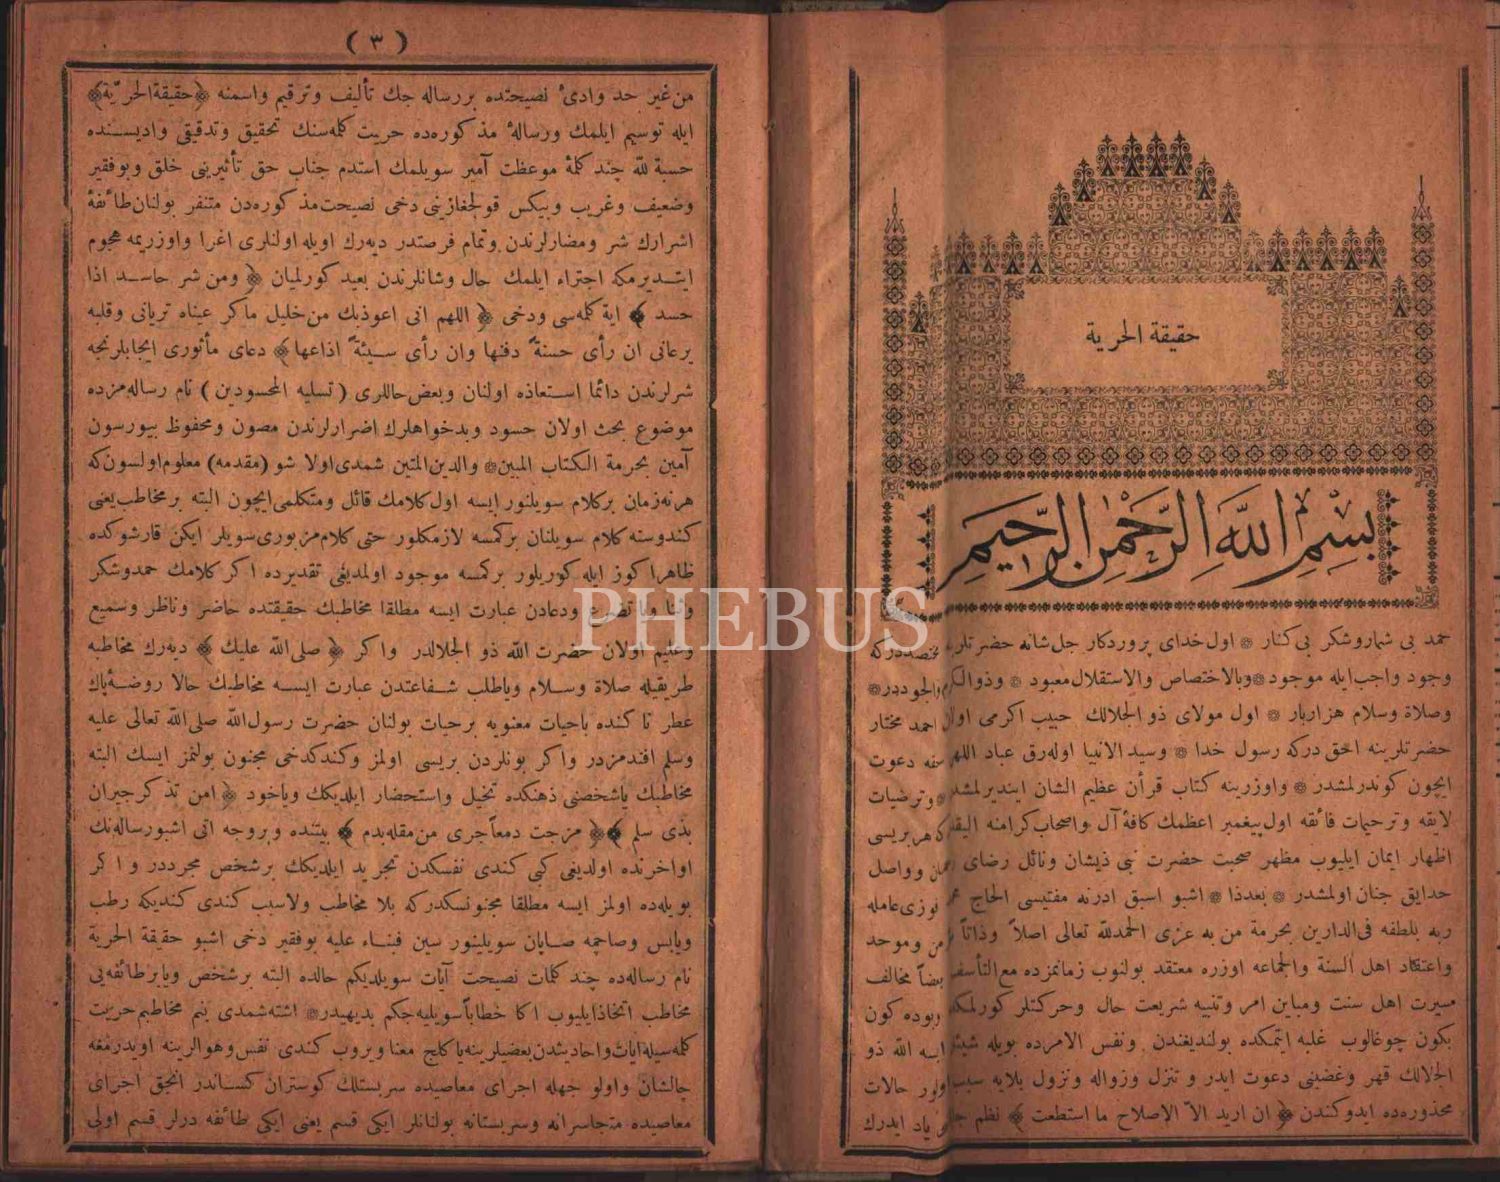 حقيقة الحرية
بسم الله الرحمن الرحيم
حمد بى شمار وشكر بى كنار ۞ اول خداى پروردكار جل شانه حضرتلرينه مختصددركه
وجود واجب ايله موجود ۞ وبالاختصاص والاستقلال معبود ۞ وذوالكرم والجوددر ۞
وصلاة وسلام هزاربار ۞ اول مولاى ذو الجلالك حبيب اكرمى اولان احمد مختار
حضرتلرينه احق دركه رسول خدا ۞ وسيد الانبيا اوله‌رق عباد اللهى دعوت
ايچون كوندرلمشدر ۞ واوزرينه كتاب قرأن عظيم الشان اينديرلمشدر ۞ وترضيات
لايقه وترحيمات فائقه اول پيغمبر اعظمك كافهٔ آل واصحاب كرامنه كه هر بريسى
اظهار ايمان ايليوب مظهر صحبت حضرت نبى ذيشان ونائل رضاى وواصل
حدايق جنان اولمشدر ۞ بعدذا ۞ اشبو اسبق ادرنه مفتيسى الحاج فوزى عامله
ربه بلطفه فى الدارين بحرمة من به عزى الحمدلله تعالى اصلاً وذاتاً وموحد
واعتقاد اهل السنة والجماعه اوزره معتقد بولنوب زمانمزده مع التأسف بعضاً مخالف
سيرت اهل سنت ومباين امر وتنبيه شريعت حال وحركتلر كورلمكده وبوده كون
بكون چوغالوب غلبه ايتمكده بولنديغندن ونفس الامرده بويله ايسه الله ذو
الجلالك قهر وغضبنى دعوت ايدر و تنزل وزواله ونزول بلايه سبب اولور حالات
محذوره‌ده ايدوكندن ﴿ ان اريد الاّ الإصلاح ما استطعت ﴾ نظم ياد ايدرك
( ٣ )
من غير حد وادئ نصيحتده بررساله جك تأليف وترقيم واسمنه ﴿ حقيقة الحرّية ﴾
ايله توسيم ايلمك ورسالهٔ مذكوره‌ده حريت كلمه‌سنك تحقيق وتدقيقى واديسنده
حسبة لله چند كلمهٔ موعظت آميز سويلمك استدم جناب حق تأثيرينى خلق وبوفقير
وضعيف وغريب وبيكس قولجغازينى دخى نصيحت مذكوره‌دن متنفر بولنان طائفهٔ
اشرارك شر ومضارلرندن وتمام فرصتدر ديه‌رك اويله اولنلرى اغرا واوزريمه هجوم
ايتديرمكه اجتراء ايلمك حال وشانلرندن بعيد كورلميان ﴿ ومن شر حاسد اذا
حسد ﴾ اية كلمه‌سى ودخى ﴿ اللهم انى اعوذبك من خليل ماكر عيناه تريانى وقلبه
يرعانى ان رأى حسنةً دفنها وان رأى سيئةً اذاعها ﴾ دعاى مأثورى ايجابلرنجه
شرلرندن دائما استعاذه اولنان وبعض حاللرى ( تسليه المحسودين ) نام رساله‌مزده
موضوع بحث اولان حسود وبدخواهلرك اضرارلرندن مصون ومحفوظ بيورسون
آمين بحرمة الكتاب المبين ۞ والدين المتين شمدى اولا شو (مقدمه) معلوم اولسون كه
هر نه‌زمان بر كلام سويلنور ايسه اول كلامك قائل ومتكلمى ايچون البته بر مخاطب يعنى
كندوسنه كلام سويلنان بر كمسه لازمكلور حتى كلام مزبورى سويلر ايكن قارشوكده
ظاهرا كوز ايله كوريلور بركمسه موجود اولمديغى تقديرده اكر كلامك حمدوشكر
وثنا ويا تضرع ودعادن عبارت ايسه مطلقا مخاطبك حقيقتده حاضر وناظر وسميع
وعليم اولان حضرت الله ذو الجلالدر واكر ﴿ صلى الله عليك ﴾ ديه‌رك مخاطبه
طريقيله صلاة وسلام وياطلب شفاعتدن عبارت ايسه مخاطبك حالا روضهٔ پاك
عطر ناكنده باحيات معنويه برحيات بولنان حضرت رسول الله صلى الله تعالى عليه
وسلم افندمزدر واكر بونلردن بريسى اولمز وكندكدخى مجنون بولنمز ايسك البته
مخاطبك ياشخصنى ذهنكده تخيل واستحضار ايلديكك وياخود ﴿ امن تذكر جيران
بذى سلم ﴾ ﴿ مزجت دمعاً جرى من مقله بدم ﴾ بيتنده وبروجه آتى اشبو رساله‌نك
اواخرنده اولديغى كبى كندى نفسكدن تجريد ايلديكك برشخص مجرددر واكر
بويله‌ده اولمز ايسه مطلقا مجنونسكدركه بلا مخاطب ولاسبب كندى كنديكه رطب
ويابس وصاچمه صاپان سويلينور سين فبناء عليه بوفقير دخى اشبو حقيقة الحرية
نام رساله‌ده چند كلمات نصيحت آيات سويلديكم حالده البته برشخص ويابر طائفه‌يى
مخاطب اتخاذايليوب اكا خطاباً سويليه‌جكم بديهيدر ۞ اشته شمدى بنم مخاطبم حريت
كلمه‌سيله آيات واحاديثدن بعضيلرينه ياكلج معنا ويروب كندى نفس وهوالرينه اويدرمغه
چالشان واولو جهله اجراى معاصيده سربستلك كوستران كسانددر انجق اجراى
معاصيده متجاسرانه وسربستانه بولنانلر ايكى قسم يعنى ايكى طائفه درلر قسم اولى
PHEBUS